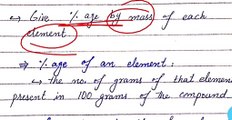 ↳ Give % age by mass of each
element.
⇒ % age of an element:
↳ the no. of grams of that elemen
present in 100 grams of the compound